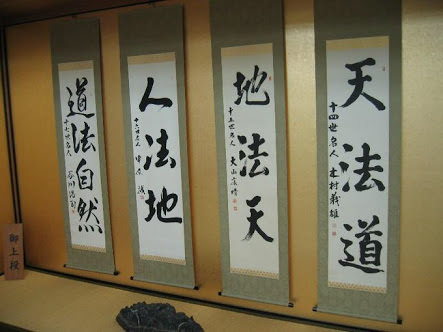 天法道
十四世名人 木村義雄
地法天
十五世名人 大山康晴
人法地
十六世名人 中原 誠
道法自然
十七世名人 谷川浩司
御上段